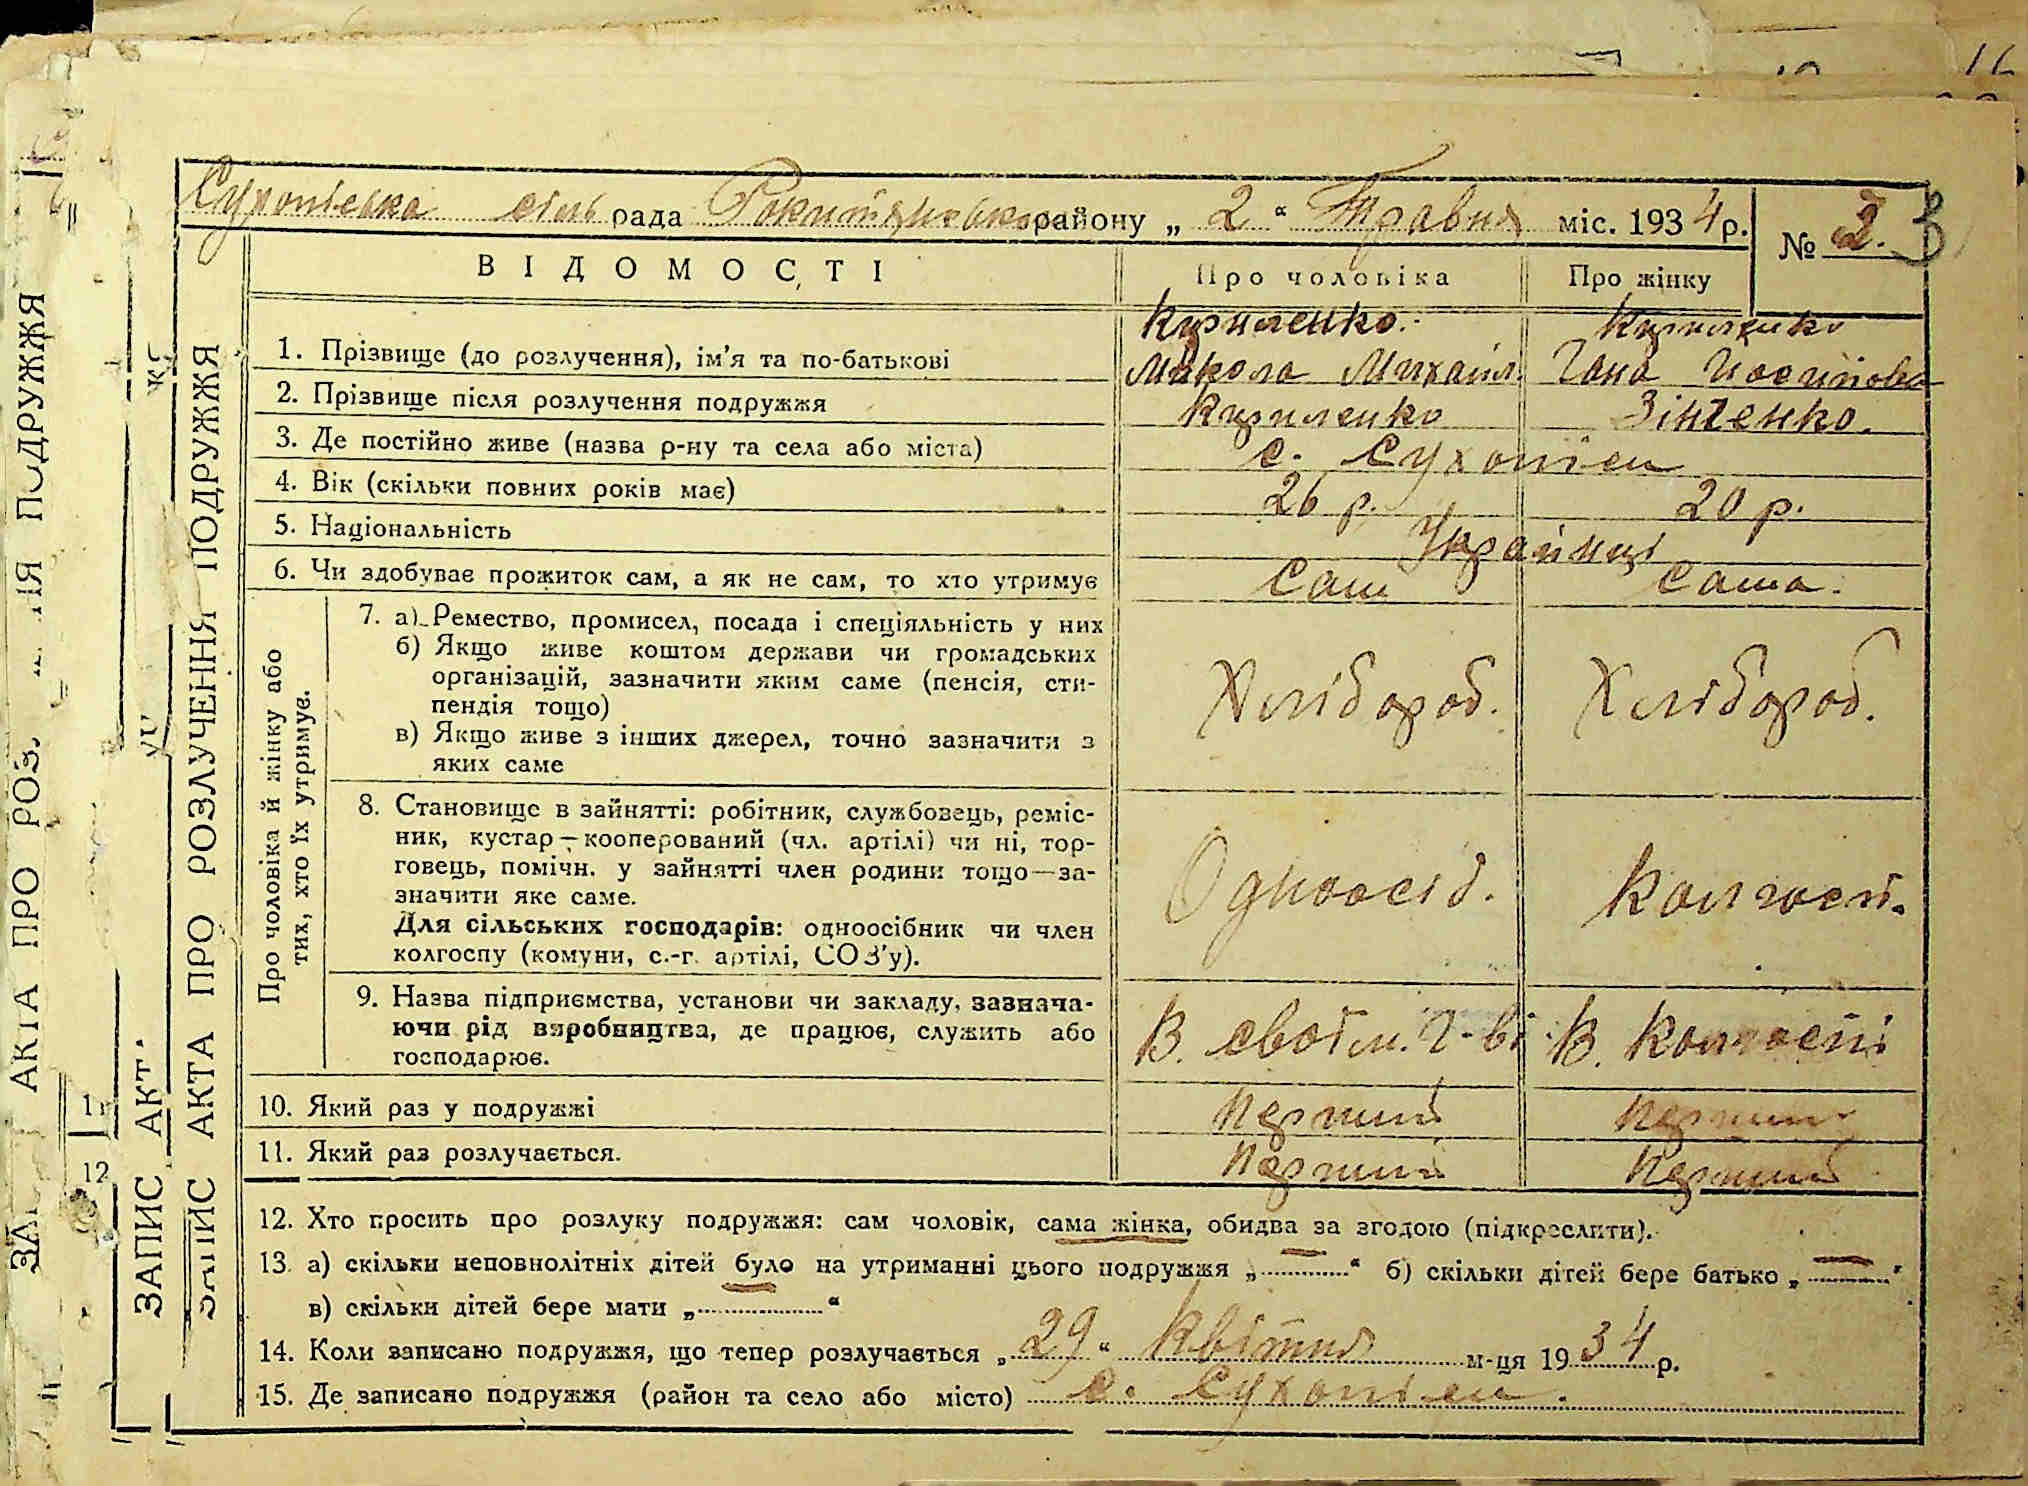 Сухоліська сіль рада Рокитянсько району „ 2 “ Травня міс. 1934 р.
№ 2. 3
ЗАПИС АКТА ПРО РОЗЛУЧЕННЯ ПОДРУЖЖЯ
ВІДОМОСТІ Про чоловіка Про жінку
1. Прізвище (до розлучення), ім’я та по-батькові Кириленко. Микола Михайл. Кириленко Гана Иосипова
2. Прізвище після розлучення подружжя Кириленко Зінченко.
3. Де постійно живе (назва р-ну та села або міста) с. Сухоліси
4. Вік (скільки повних років має) 26 р. 20 р.
5. Національність Украйнці
6. Чи здобуває прожиток сам, а як не сам, то хто утримує Сам Сама.
Про чоловіка й жінку або
тих, хто їх утримує.
7. а) Ремество, промисел, посада і спеціяльність у них
б) Якщо живе коштом держави чи громадських
організацій, зазначити яким саме (пенсія, сти-
пендія тощо)
в) Якщо живе з інших джерел, точно зазначити з
яких саме
Хлібороб. Хлібороб.
8. Становище в зайнятті: робітник, службовець, реміс-
ник, кустар—кооперований (чл. артілі) чи ні, тор-
говець, помічн. у зайнятті член родини тощо—за-
значити яке саме.
Для сільських господарів: одноосібник чи член
колгоспу (комуни, с.-г. артілі, СОЗ’у).
Одноосіб. Колгосп.
9. Назва підприємства, установи чи закладу, зазнача-
ючи рід виробництва, де працює, служить або
господарює.
В. своїм. г-ві В. Колгоспі
10. Який раз у подружжі Перший Перший
11. Який раз розлучається. Перший Перший
12. Хто просить про розлуку подружжя: сам чоловік, сама жінка, обидва за згодою (підкреслити).
13. а) скільки неповнолітніх дітей було на утриманні цього подружжя „ — “ б) скільки дітей бере батько „ — “
в) скільки дітей бере мати „ — “
14. Коли записано подружжя, що тепер розлучається „ 29 “ Квітня м-ця 1934 р.
15. Де записано подружжя (район та село або місто) с. Сухоліси.